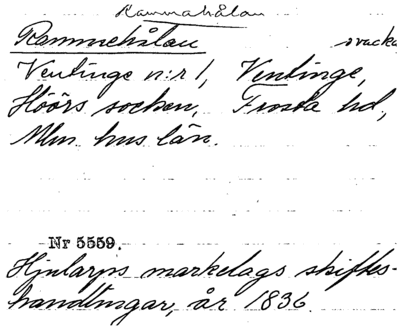 Rammahålan
Rammehålan svacka
Ventinge n:r 1, Ventinge,
Höörs socken, Frosta hd,
Mlm hus län.
Nr 5559.
Hjularps markelags skiftes-
handlingar, år 1836.